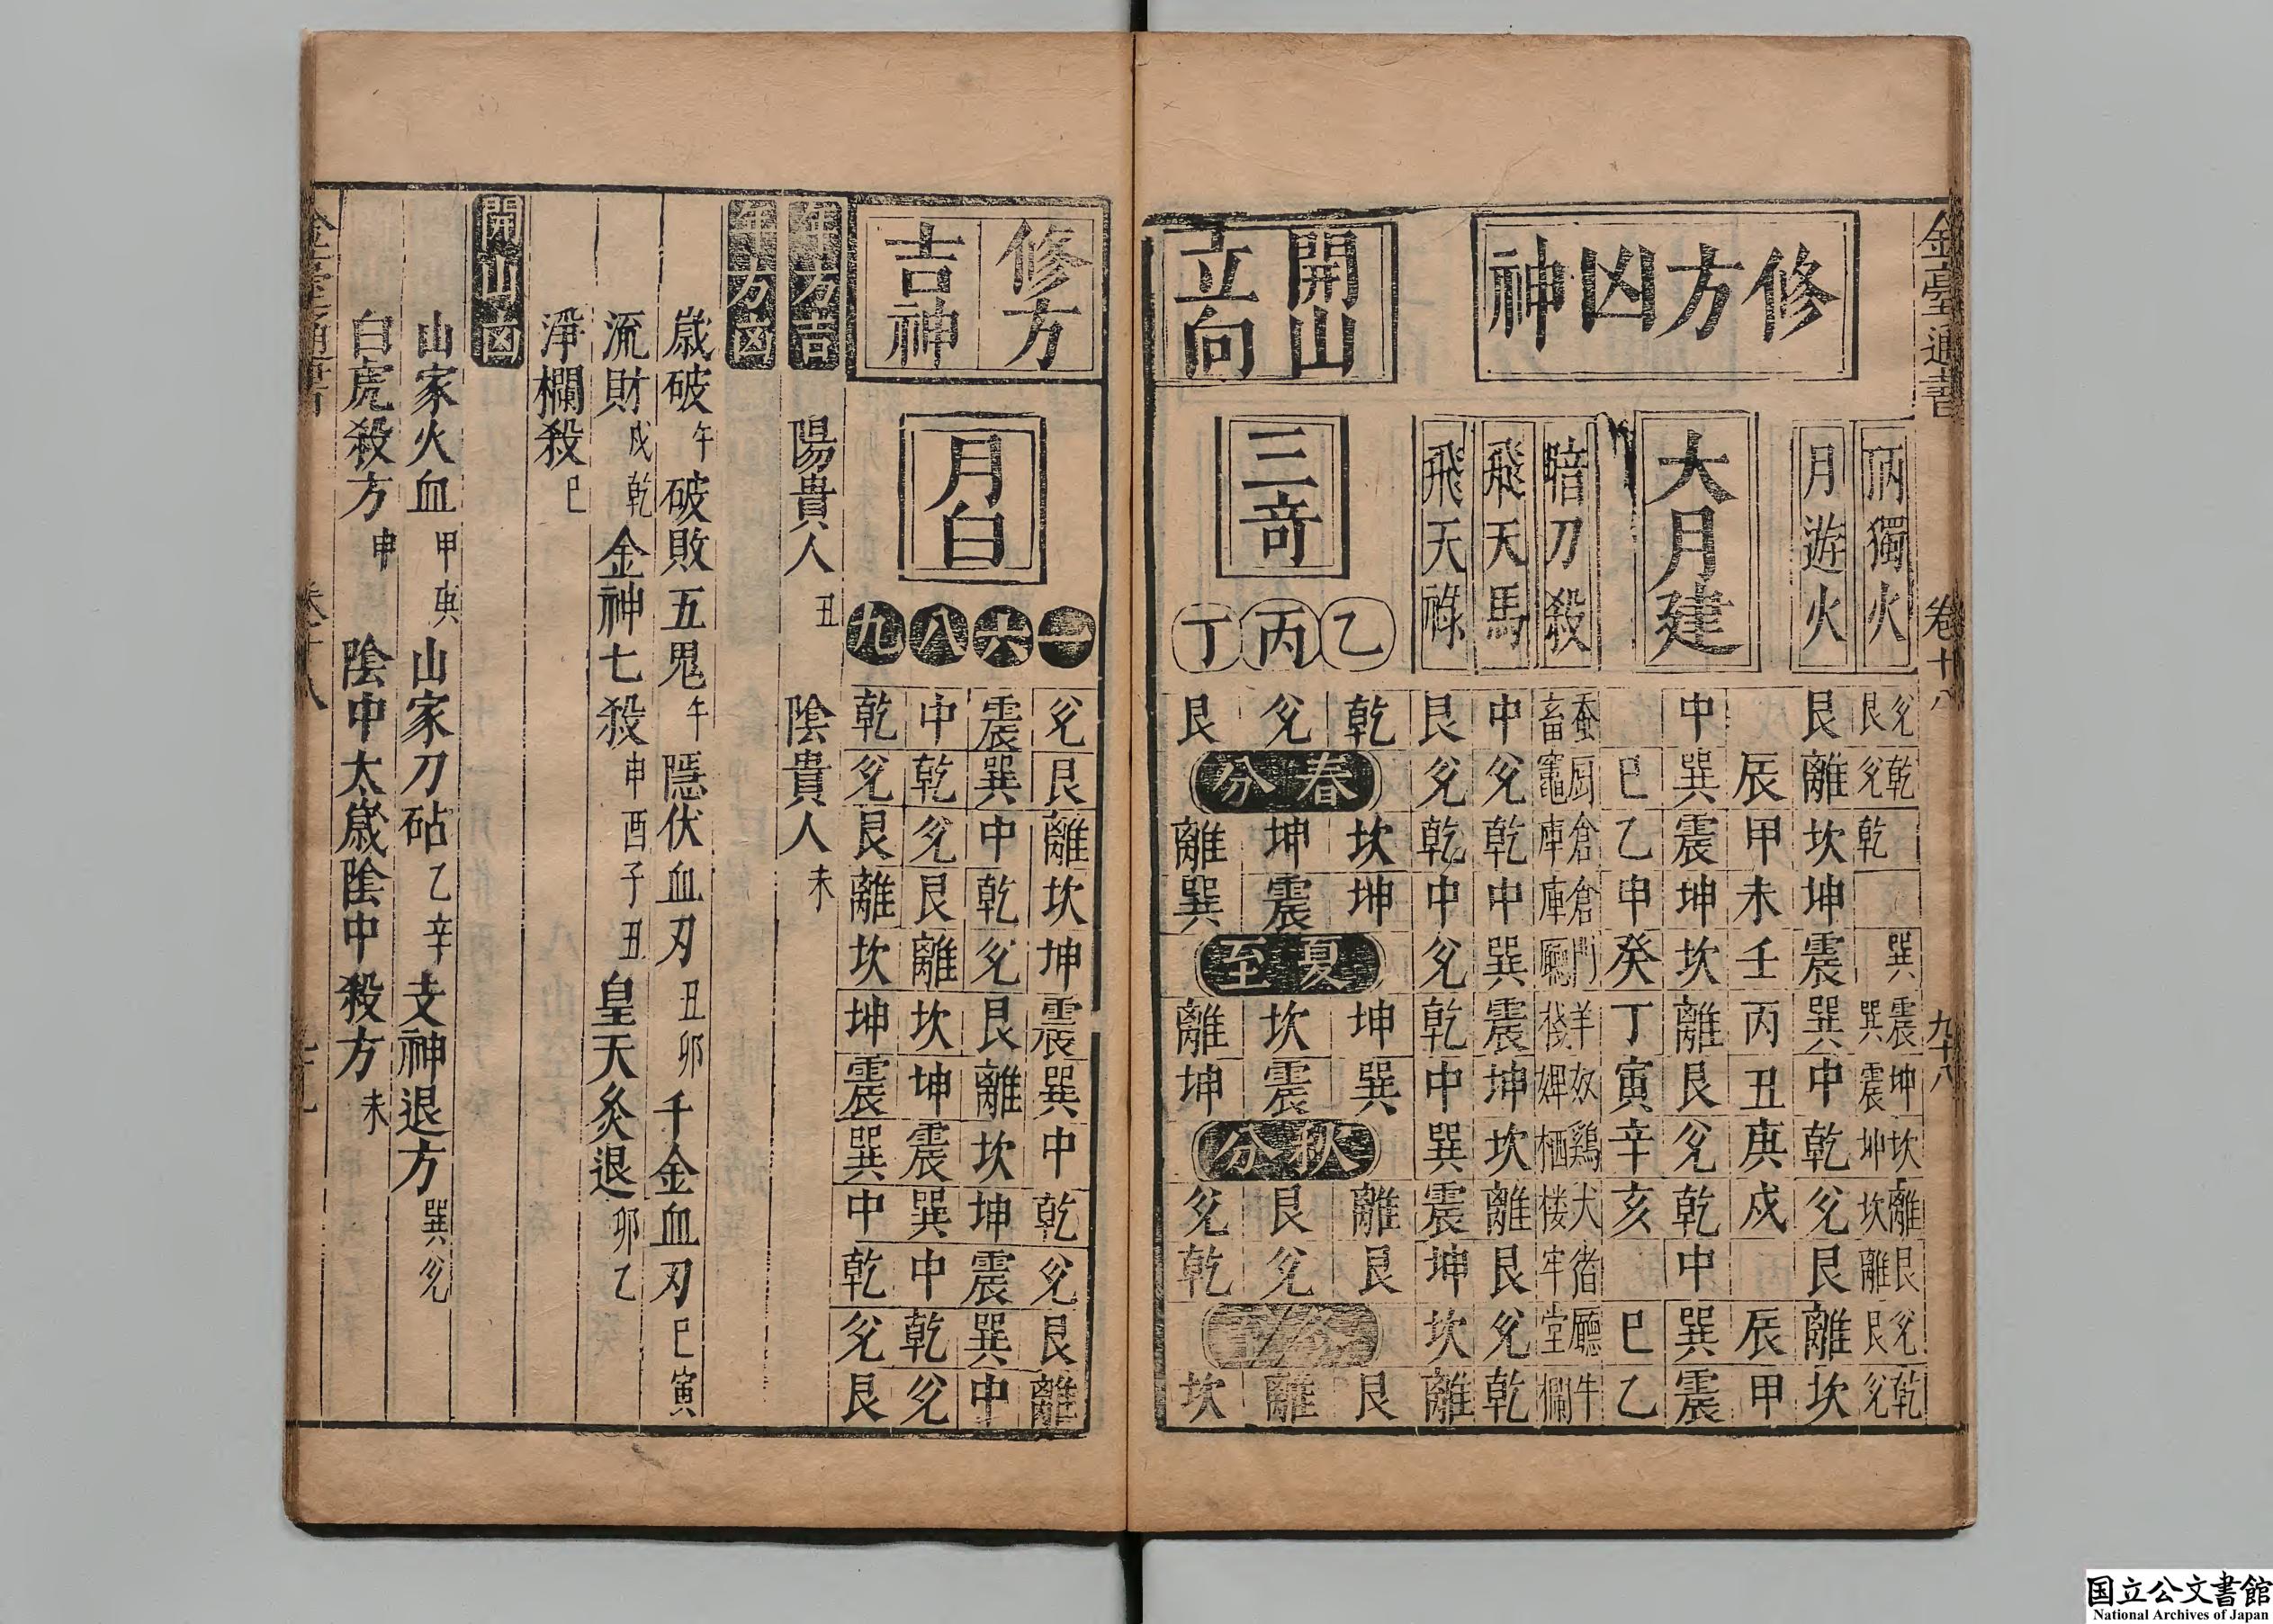 金臺通書 卷十八 九十八
修方凶神
丙獨火 兌艮 乾兌 乾 巽 震巽 坤震 坎坤 離坎 艮離 兌艮 乾兌
月遊火 艮 離 坎 坤 震 巽 中 乾 兌 艮 離 坎
辰 甲 未 壬 丙 丑 庚 戌 辰 甲
大月建 中 巽 震 坤 坎 離 艮 兌 乾 中 巽 震
巳 乙 申 癸 丁 寅 辛 亥 巳 乙
暗刀殺 蚕畜 厨竈 倉庫 倉庫 門廳 羊棧 奴婢 鷄栖 犬楼 猪牢 廳堂 牛欄
飛天馬 中 兌 乾 中 巽 震 坤 坎 離 艮 兌 乾
飛天祿 艮 兌 乾 中 兌 乾 中 巽 震 坤 坎 離
開山立向
三奇
乙 乾 春分 坎 坤 夏至 坤 巽 秋分 離 艮 冬至 艮
丙 兌 坤 震 坎 震 艮 兌 離
丁 艮 離 巽 離 坤 兌 乾 坎
修方吉神
月白
一 兌 艮 離 坎 坤 震 巽 中 乾 兌 艮 離
六 震 巽 中 乾 兌 艮 離 坎 坤 震 巽 中
八 中 乾 兌 艮 離 坎 坤 震 巽 中 乾 兌
九 乾 兌 艮 離 坎 坤 震 巽 中 乾 兌 艮
年方吉 陽貴人丑 陰貴人未
年方凶
歲破午 破敗五鬼午 隱伏血刃丑卯 千金血刃巳寅
流財戌乾 金神七殺申酉子丑 皇天灸退卯乙
淨欄殺巳
開山凶
山家火血甲庚 山家刀砧乙辛 支神退方巽兌
白虎殺方申 陰中太歲 陰中殺方未
国立公文書館
National Archives of Japan